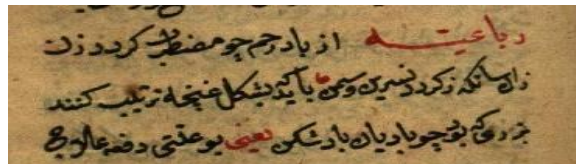 رباعیه از باد رحم چو مضطرب کردد زن
زان سانکه ز کرد و نسرین وسمن باید که بشکل غنچه ترتیب کنند
بوی چو بادیان باد شکن یعنی بو علتی دفعه عالج